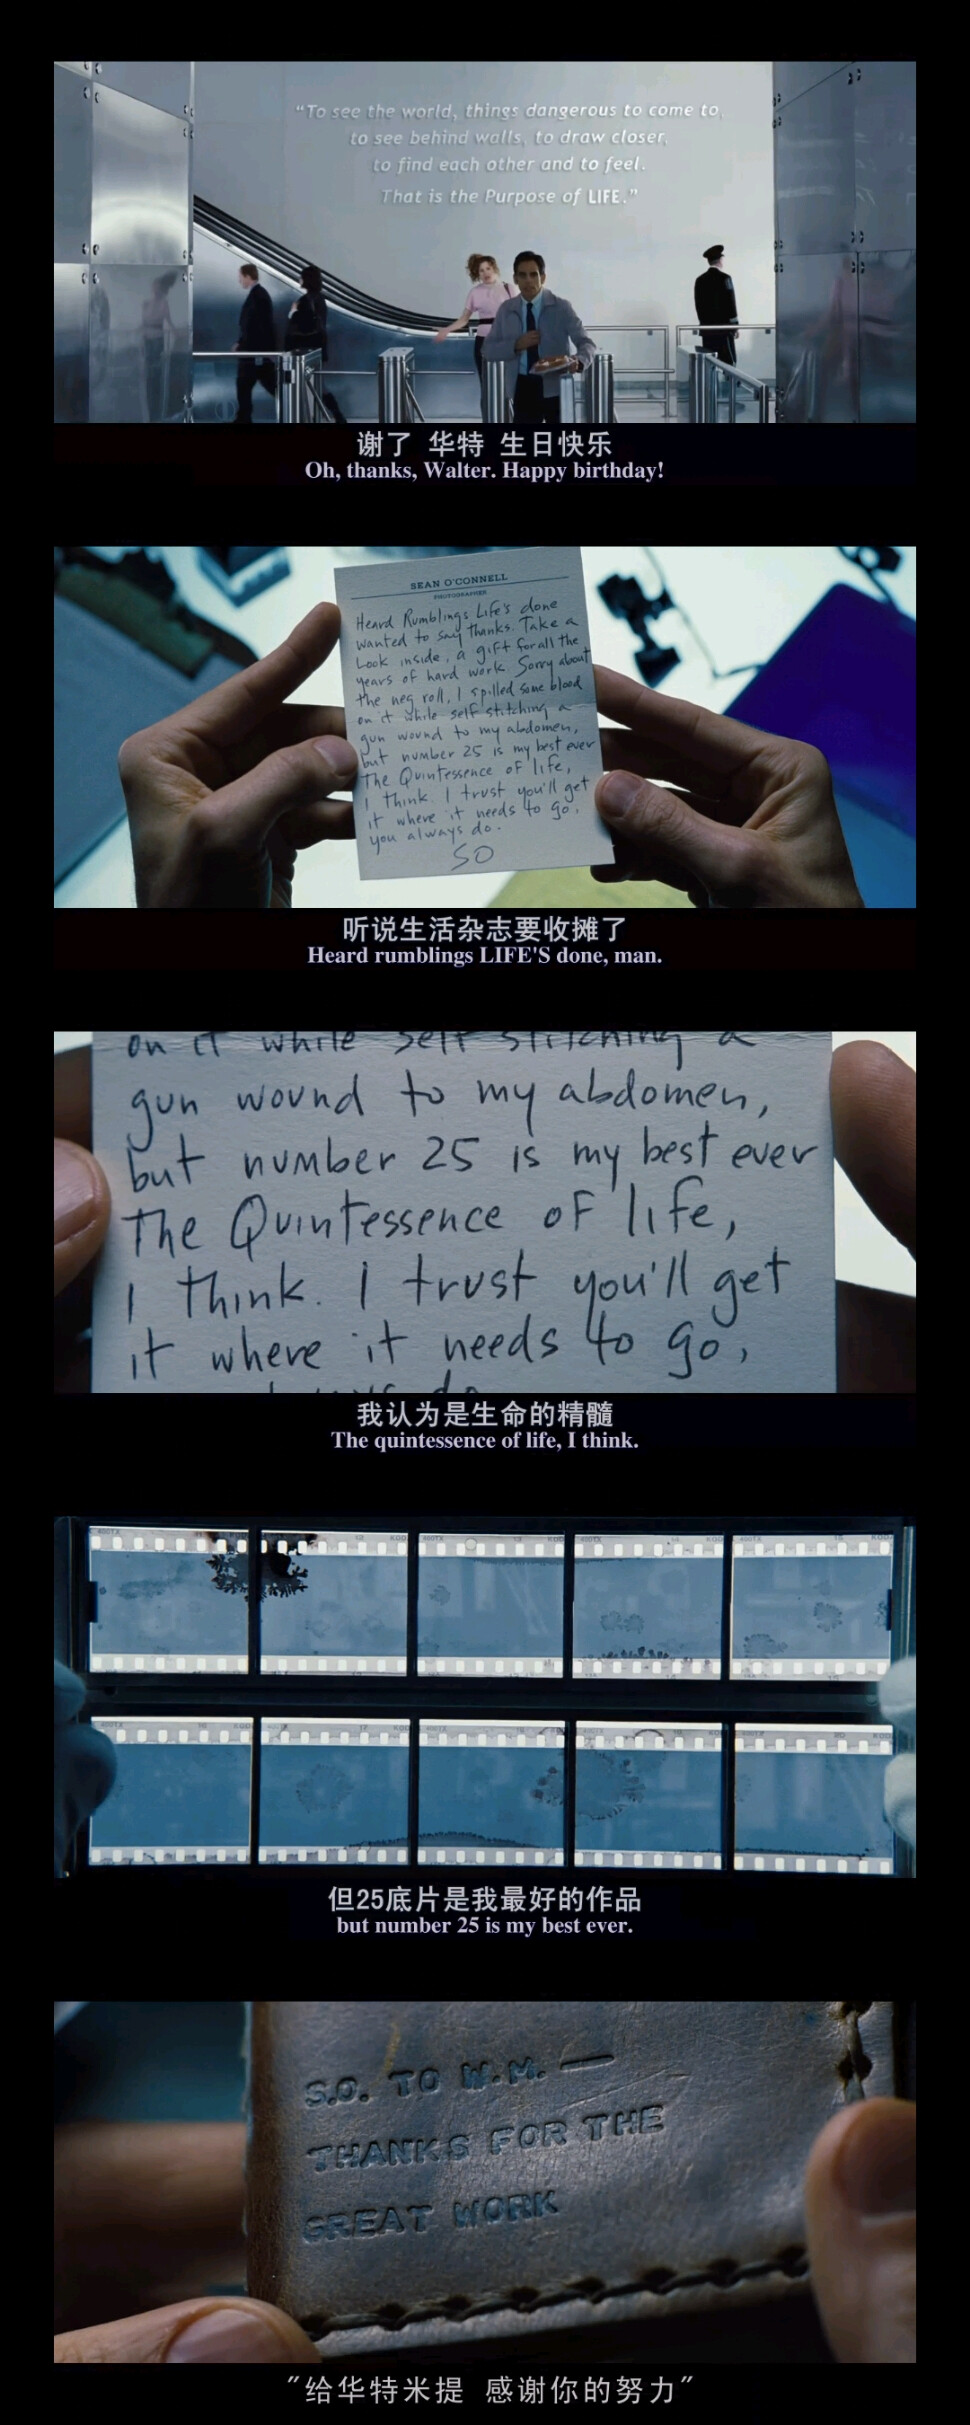 “To see the world, things dangerous to come to,
to see behind walls, to draw closer,
to find each other and to feel.
That is the Purpose of LIFE.”
谢了 华特 生日快乐
Oh, thanks, Walter. Happy birthday!
SEAN O'CONNELL
PHOTOGRAPHER
Heard Rumblings Life's done
wanted to say thanks. Take a
Look inside, a gift for all the
years of hard work. Sorry about
the neg roll, I spilled some blood
on it while self stitching a
gun wound to my abdomen,
but number 25 is my best ever
The Quintessence of life,
I think. I trust you'll get
it where it needs to go,
you always do.
SO
听说生活杂志要收摊了
Heard rumblings LIFE'S done, man.
on it while self stitching a
gun wound to my abdomen,
but number 25 is my best ever
The Quintessence of life,
I think. I trust you'll get
it where it needs to go,
我认为是生命的精髓
The quintessence of life, I think.
但25底片是我最好的作品
but number 25 is my best ever.
S.O. TO W.M. —
THANKS FOR THE
GREAT WORK
"给华特米提 感谢你的努力"